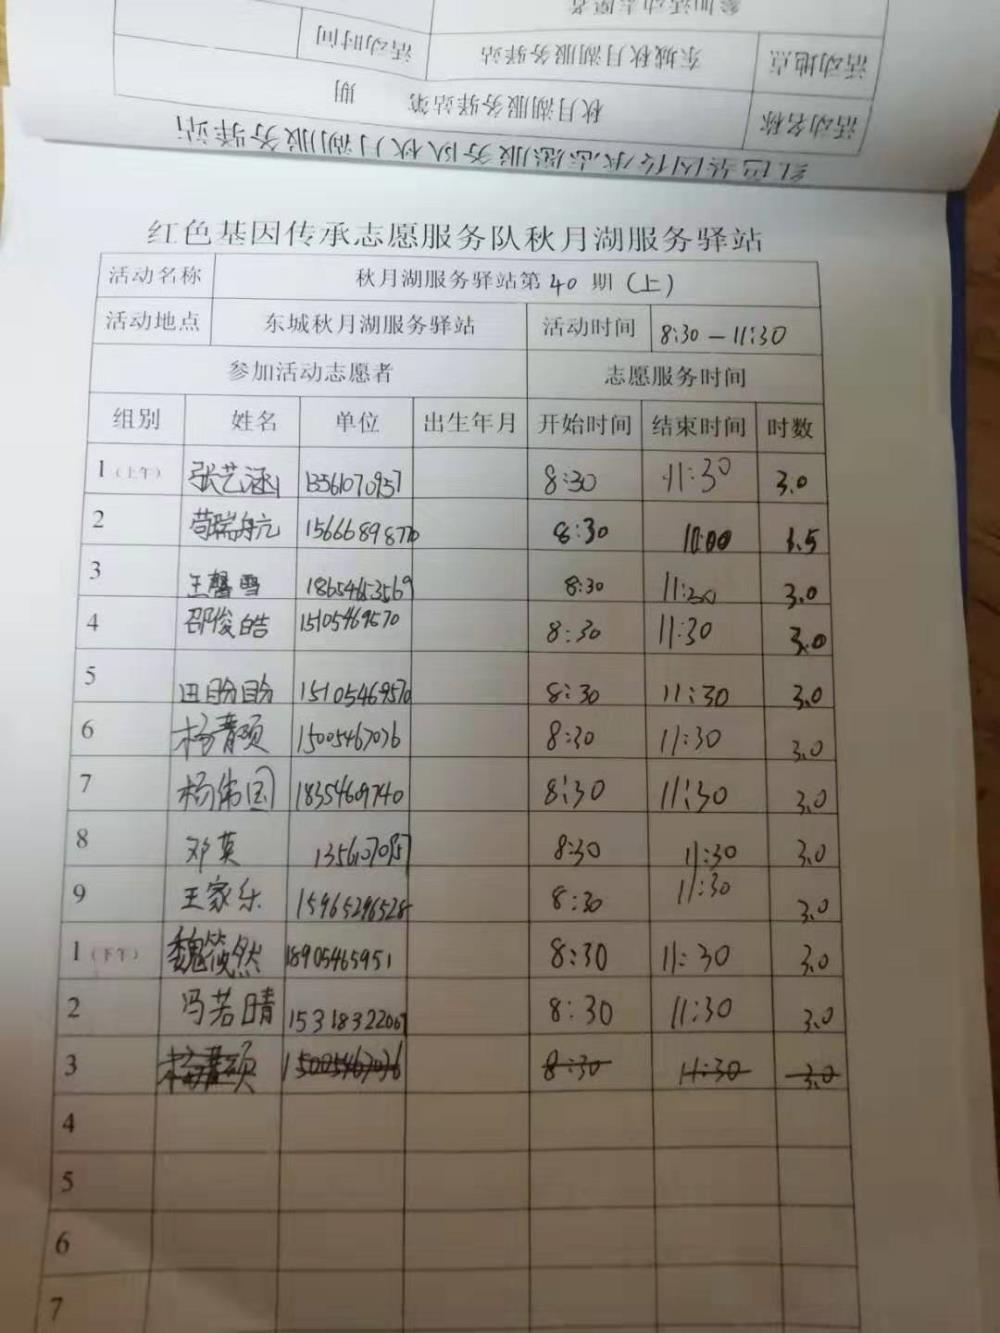 参加活动志愿者
活动地点 东城秋月湖服务驿站 活动时间
活动名称 秋月湖服务驿站第 期
红色基因传承志愿服务队秋月湖服务驿站
红色基因传承志愿服务队秋月湖服务驿站
活动名称 秋月湖服务驿站第40期(上)
活动地点 东城秋月湖服务驿站 活动时间 8:30-11:30
参加活动志愿者 志愿服务时间
组别 姓名 单位 出生年月 开始时间 结束时间 时数
1(上午) 张艺涵 13561070957 8:30 11:30 3.0
2 苟瑞航 15666898770 8:30 10:00 1.5
3 王馨雪 18654653569 8:30 11:30 3.0
4 邵俊皓 15105469570 8:30 11:30 3.0
5 田盼盼 15105469570 8:30 11:30 3.0
6 杨馥硕 15005467036 8:30 11:30 3.0
7 杨伟国 18354609740 8:30 11:30 3.0
8 邓英 13561070957 8:30 11:30 3.0
9 王家乐 15965296528 8:30 11:30 3.0
1(下午) 魏筱然 18905465951 8:30 11:30 3.0
2 冯若晴 15318322067 8:30 11:30 3.0
3 15005467036 8:30 11:30 3.0
4
5
6
7